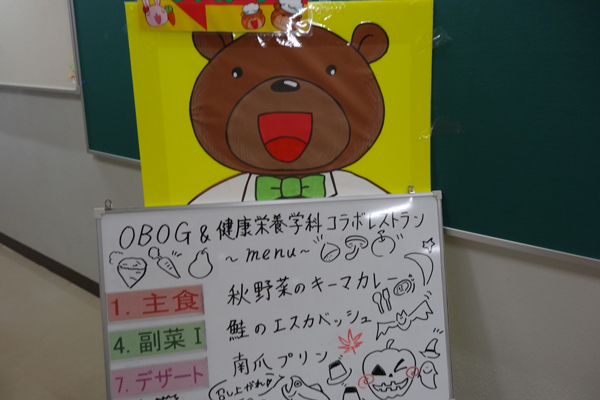 OBOG & 健康栄養学科 コラボレストラン
~ menu ~
1. 主食 秋野菜のキーマカレー
4. 副菜 I 鮭のエスカベッシュ
7. デザート 南瓜プリン
召し上がれ